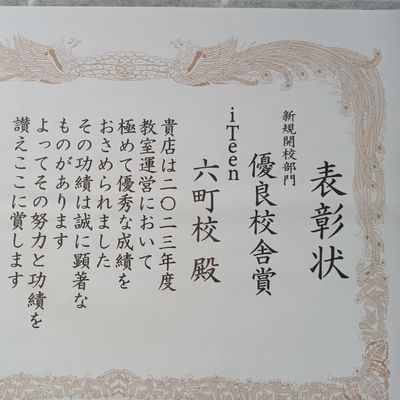 表彰状
新規開校部門
優良校舎賞
iTeen
六町校 殿
貴店は二〇二三年度
教室運営において
極めて優秀な成績を
おさめられました
その功績は誠に顕著な
ものがあります
よってその努力と功績を
讃えここに賞します